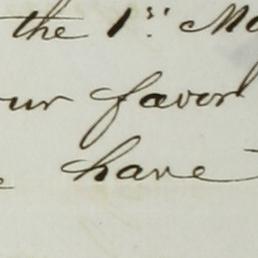 the 1st Ma
our favor
have